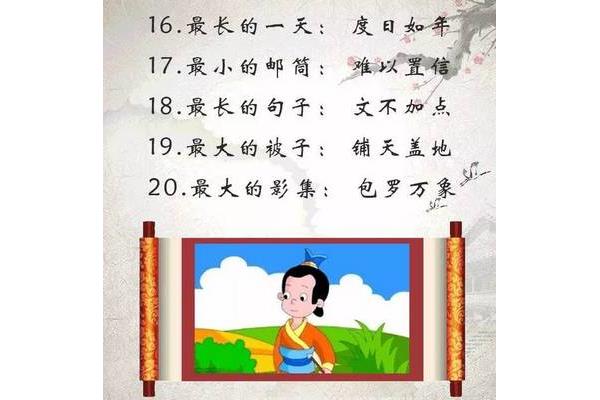 16.最长的一天： 度日如年
17.最小的邮筒： 难以置信
18.最长的句子： 文不加点
19.最大的被子： 铺天盖地
20.最大的影集： 包罗万象